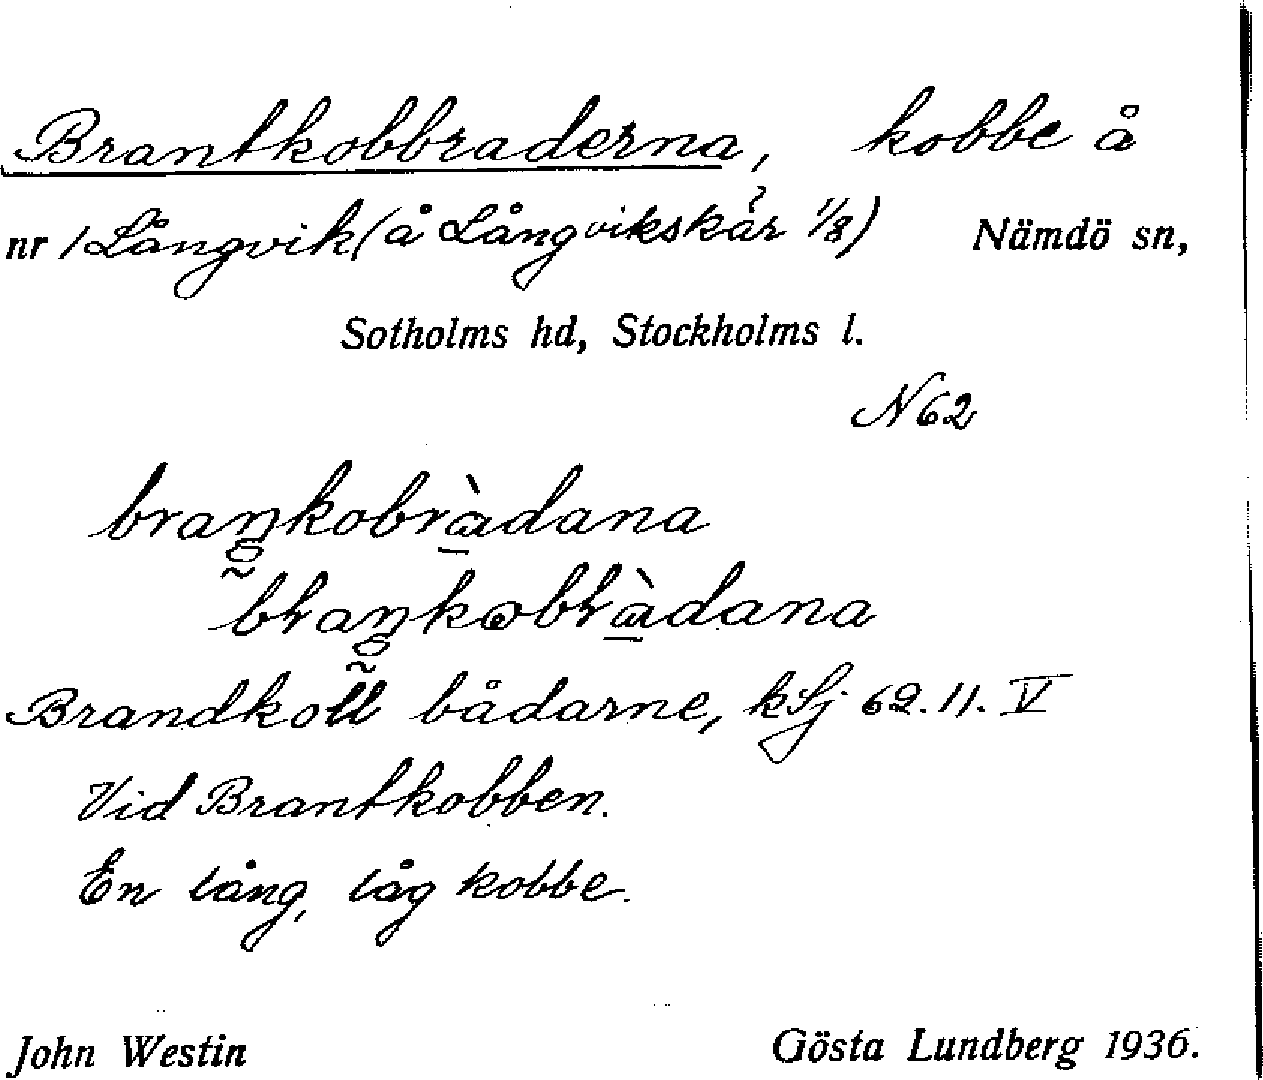 Brantkobbraderna, kobbe å
nr 1 Långvik (å Långvikskär 1/8) Nämdö sn,
Sotholms hd, Stockholms l.
N 62
braŋkobràdana
braŋkobràdana
Brandkoll bådarne, kSj 62. 11. V
Vid Brantkobben.
En lång, låg kobbe.
John Westin Gösta Lundberg 1936.